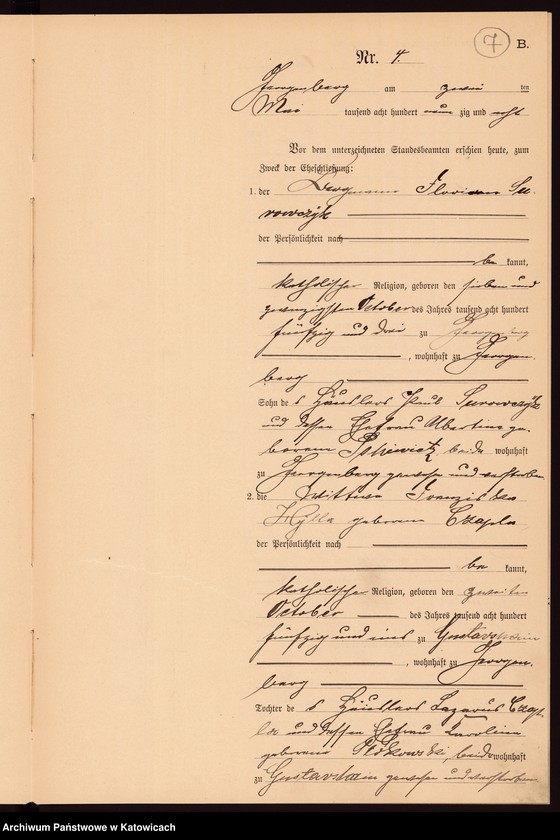 7 B.
Nr. 4.
Georgenberg am zwei ten
Mai tausend acht hundert neun zig und acht
Vor dem unterzeichneten Standesbeamten erschien heute, zum
Zweck der Eheschließung:
1. der Bergmann Florian Su-
rowczyk
der Persönlichkeit nach
be kannt,
katholischer Religion, geboren den sieben und
zwanzigsten October des Jahres tausend acht hundert
fünfzig und drei zu Georgenberg
, wohnhaft zu Georgen-
berg
Sohn de s Häuslers Jakub Surowczyk
und dessen Ehefrau Albertine ge-
borene beide wohnhaft
zu Georgenberg gewesen und verstorben
2. die Wittwe Franziska
Hylla geborene Czapla
der Persönlichkeit nach
be kannt,
katholischer Religion, geboren den zweiten
October des Jahres tausend acht hundert
fünfzig und eins zu
, wohnhaft zu Georgen-
berg
Tochter de s Häuslers Lazarus Czap-
la und dessen Ehefrau Karoline
geborene beide wohnhaft
zu gewesen und verstorben
Archiwum Państwowe w Katowicach